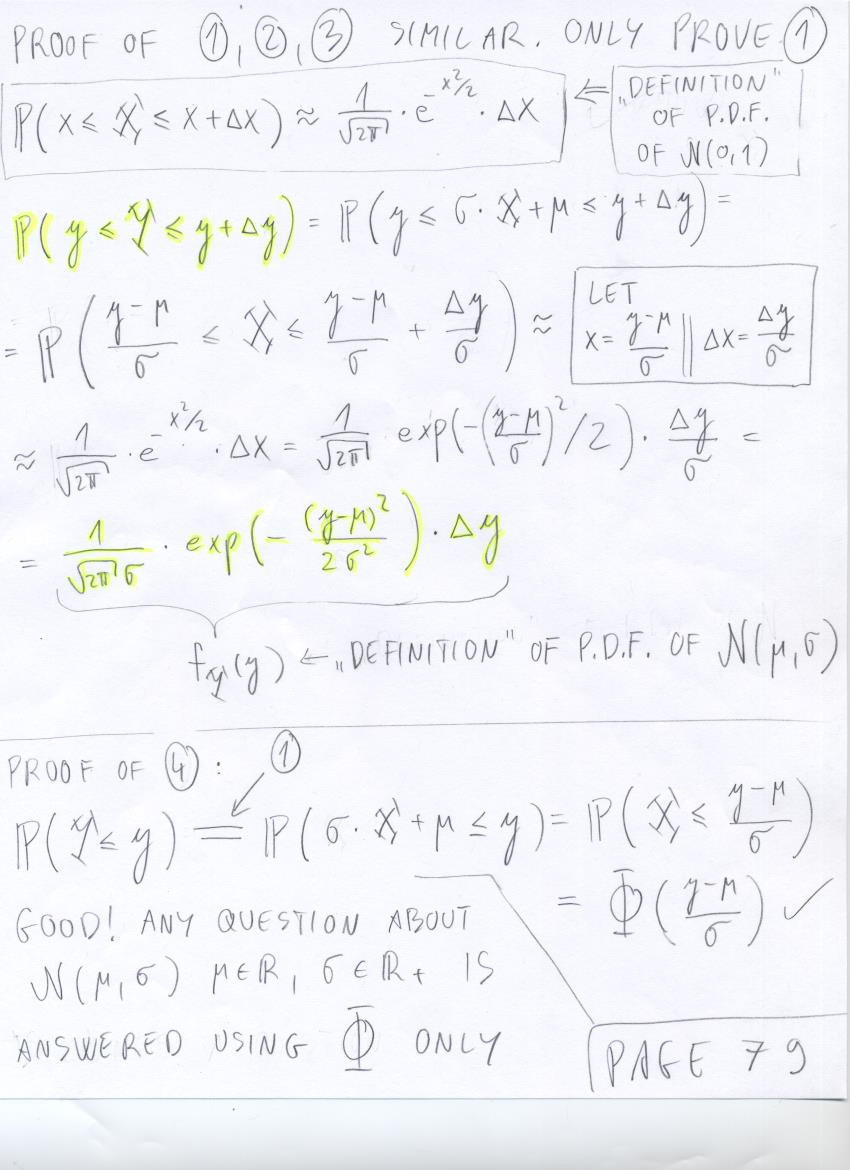 PROOF OF ①, ②, ③ SIMILAR. ONLY PROVE ①
ℙ(x ≤ X ≤ x+Δx) ≈ 1/√2π · e^{-x²/2} · Δx ⇐ „DEFINITION"
OF P.D.F.
OF N(0,1)
ℙ(y ≤ Y ≤ y+Δy) = ℙ(y ≤ σ·X+μ ≤ y+Δy) =
= ℙ((y-μ)/σ ≤ X ≤ (y-μ)/σ + Δy/σ) ≈ LET
x = (y-μ)/σ || Δx = Δy/σ
≈ 1/√2π · e^{-x²/2} · Δx = 1/√2π exp(-((y-μ)/σ)²/2) · Δy/σ =
= 1/(√2π σ) · exp(-(y-μ)²/2σ²) · Δy
f_Y(y) ← „DEFINITION" OF P.D.F. OF N(μ,σ)
PROOF OF ④: ①
ℙ(Y ≤ y) = ℙ(σ·X+μ ≤ y) = ℙ(X ≤ (y-μ)/σ)
= Φ((y-μ)/σ) ✓
GOOD! ANY QUESTION ABOUT
N(μ,σ) μ∈ℝ, σ∈ℝ+ IS
ANSWERED USING Φ ONLY
PAGE 79